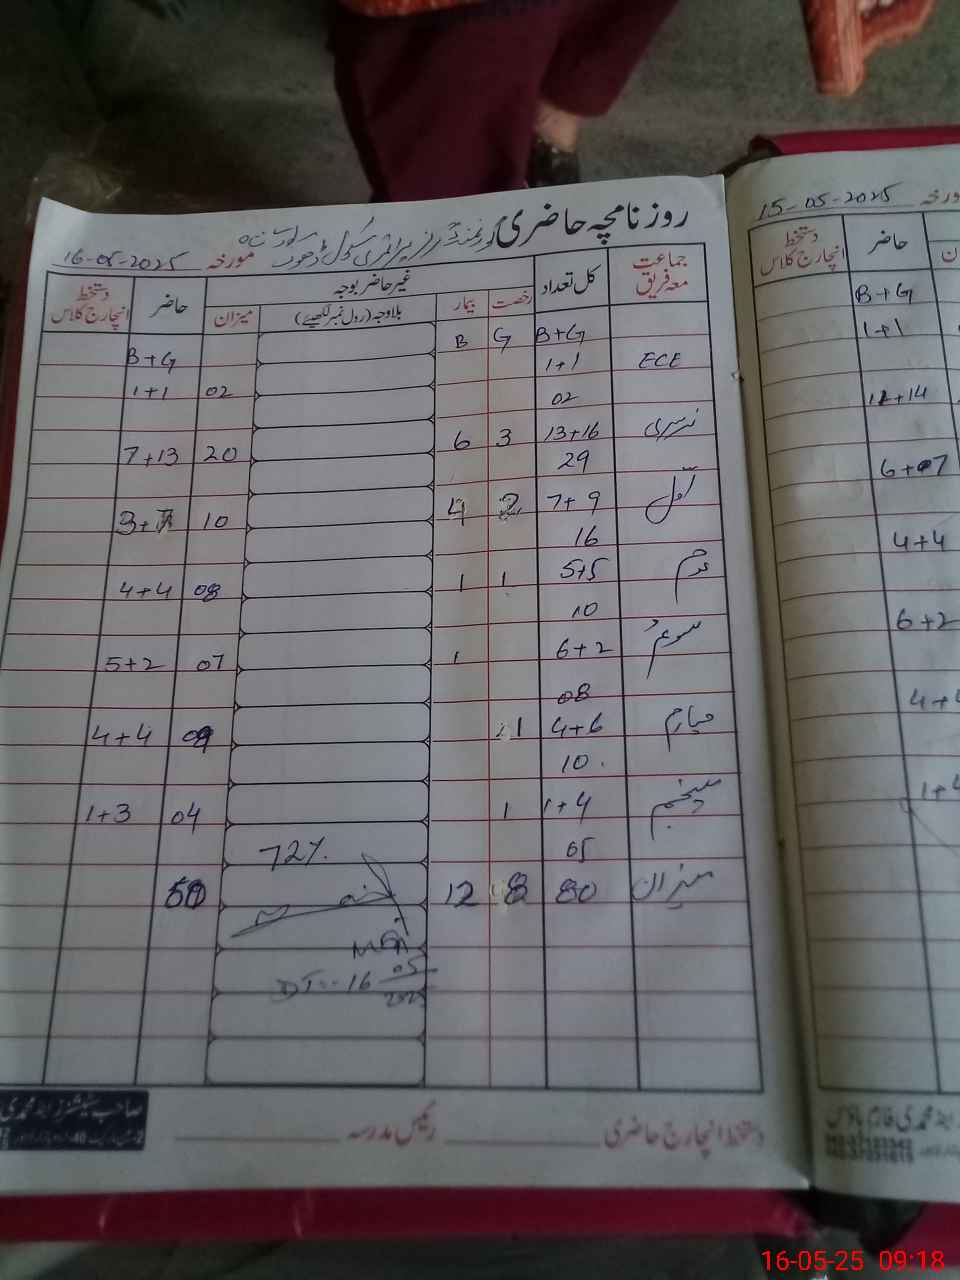 روزنامچہ حاضری گورنمنٹ گرلز پرائمری سکول
مورخہ 16-05-2025
جماعت معہ فریق کل تعداد غیر حاضر بوجہ حاضر دستخط انچارج کلاس
رخصت بیمار بلاوجہ (رول نمبر لکھیے) میزان
B+G G B B+G
ECE 1+1 02 1+1
02
نرسری 13+16 3 6 20 7+13
29
اول 7+9 2 4 10
16
دوم 5+5 1 1 08 4+4
10
سوئم 6+2 1 07 5+2
08
چہارم 4+6 1 4+4
10
پنجم 1+4 1 04 1+3
05
72%
میزان 80 8 12
MEA
DT:- 16 05 2025
دستخط انچارج حاضری
رئیس مدرسہ
15-05-2025 مورخہ
حاضر دستخط انچارج کلاس
B+G
1+1
6+07
4+4
6+2
16-05-25 09:18